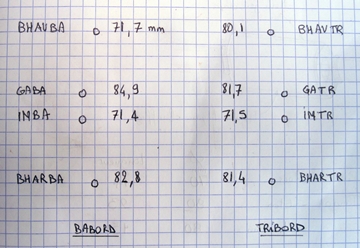 BHAUBA o 71,7 mm 80,1 o BHAVTR
GABA o 84,9 81,7 o GATR
INBA o 71,4 71,5 o INTR
BHARBA o 82,8 81,4 o BHARTR
BABORD TRIBORD